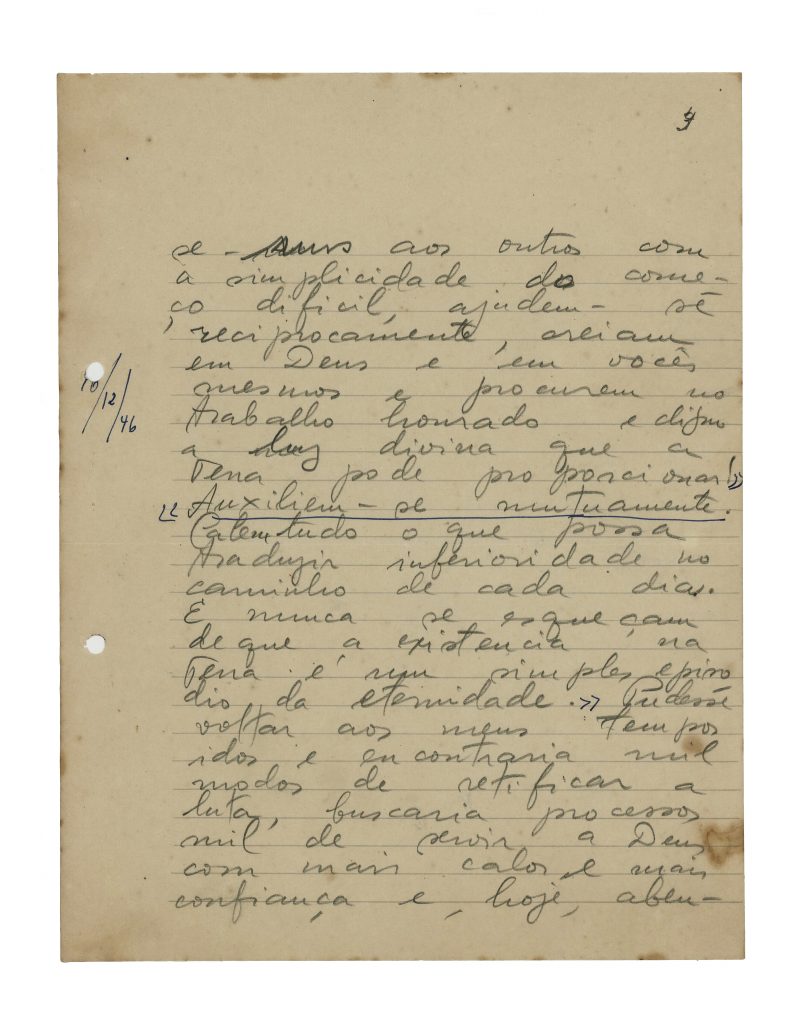 se-uns aos outros com
a simplicidade do come-
ço dificil, ajudem-se
reciprocamente, creiam
em Deus e em vocês
10/12/46
mesmos e procurem no
trabalho honrado e digno
a luz divina que a
Terra pode proporcionar!»
«Auxiliem-se mutuamente.
Calem tudo o que possa
traduzir inferioridade no
caminho de cada dia.
E nunca se esqueçam
de que a existencia na
Terra é um simples episo
dio da eternidade.» Pudesse
voltar aos meus tempos
idos e encontraria mil
modos de retificar a
luta, buscaria processos
mil de servir a Deus
com mais calor e mais
confiança e, hoje, aben-